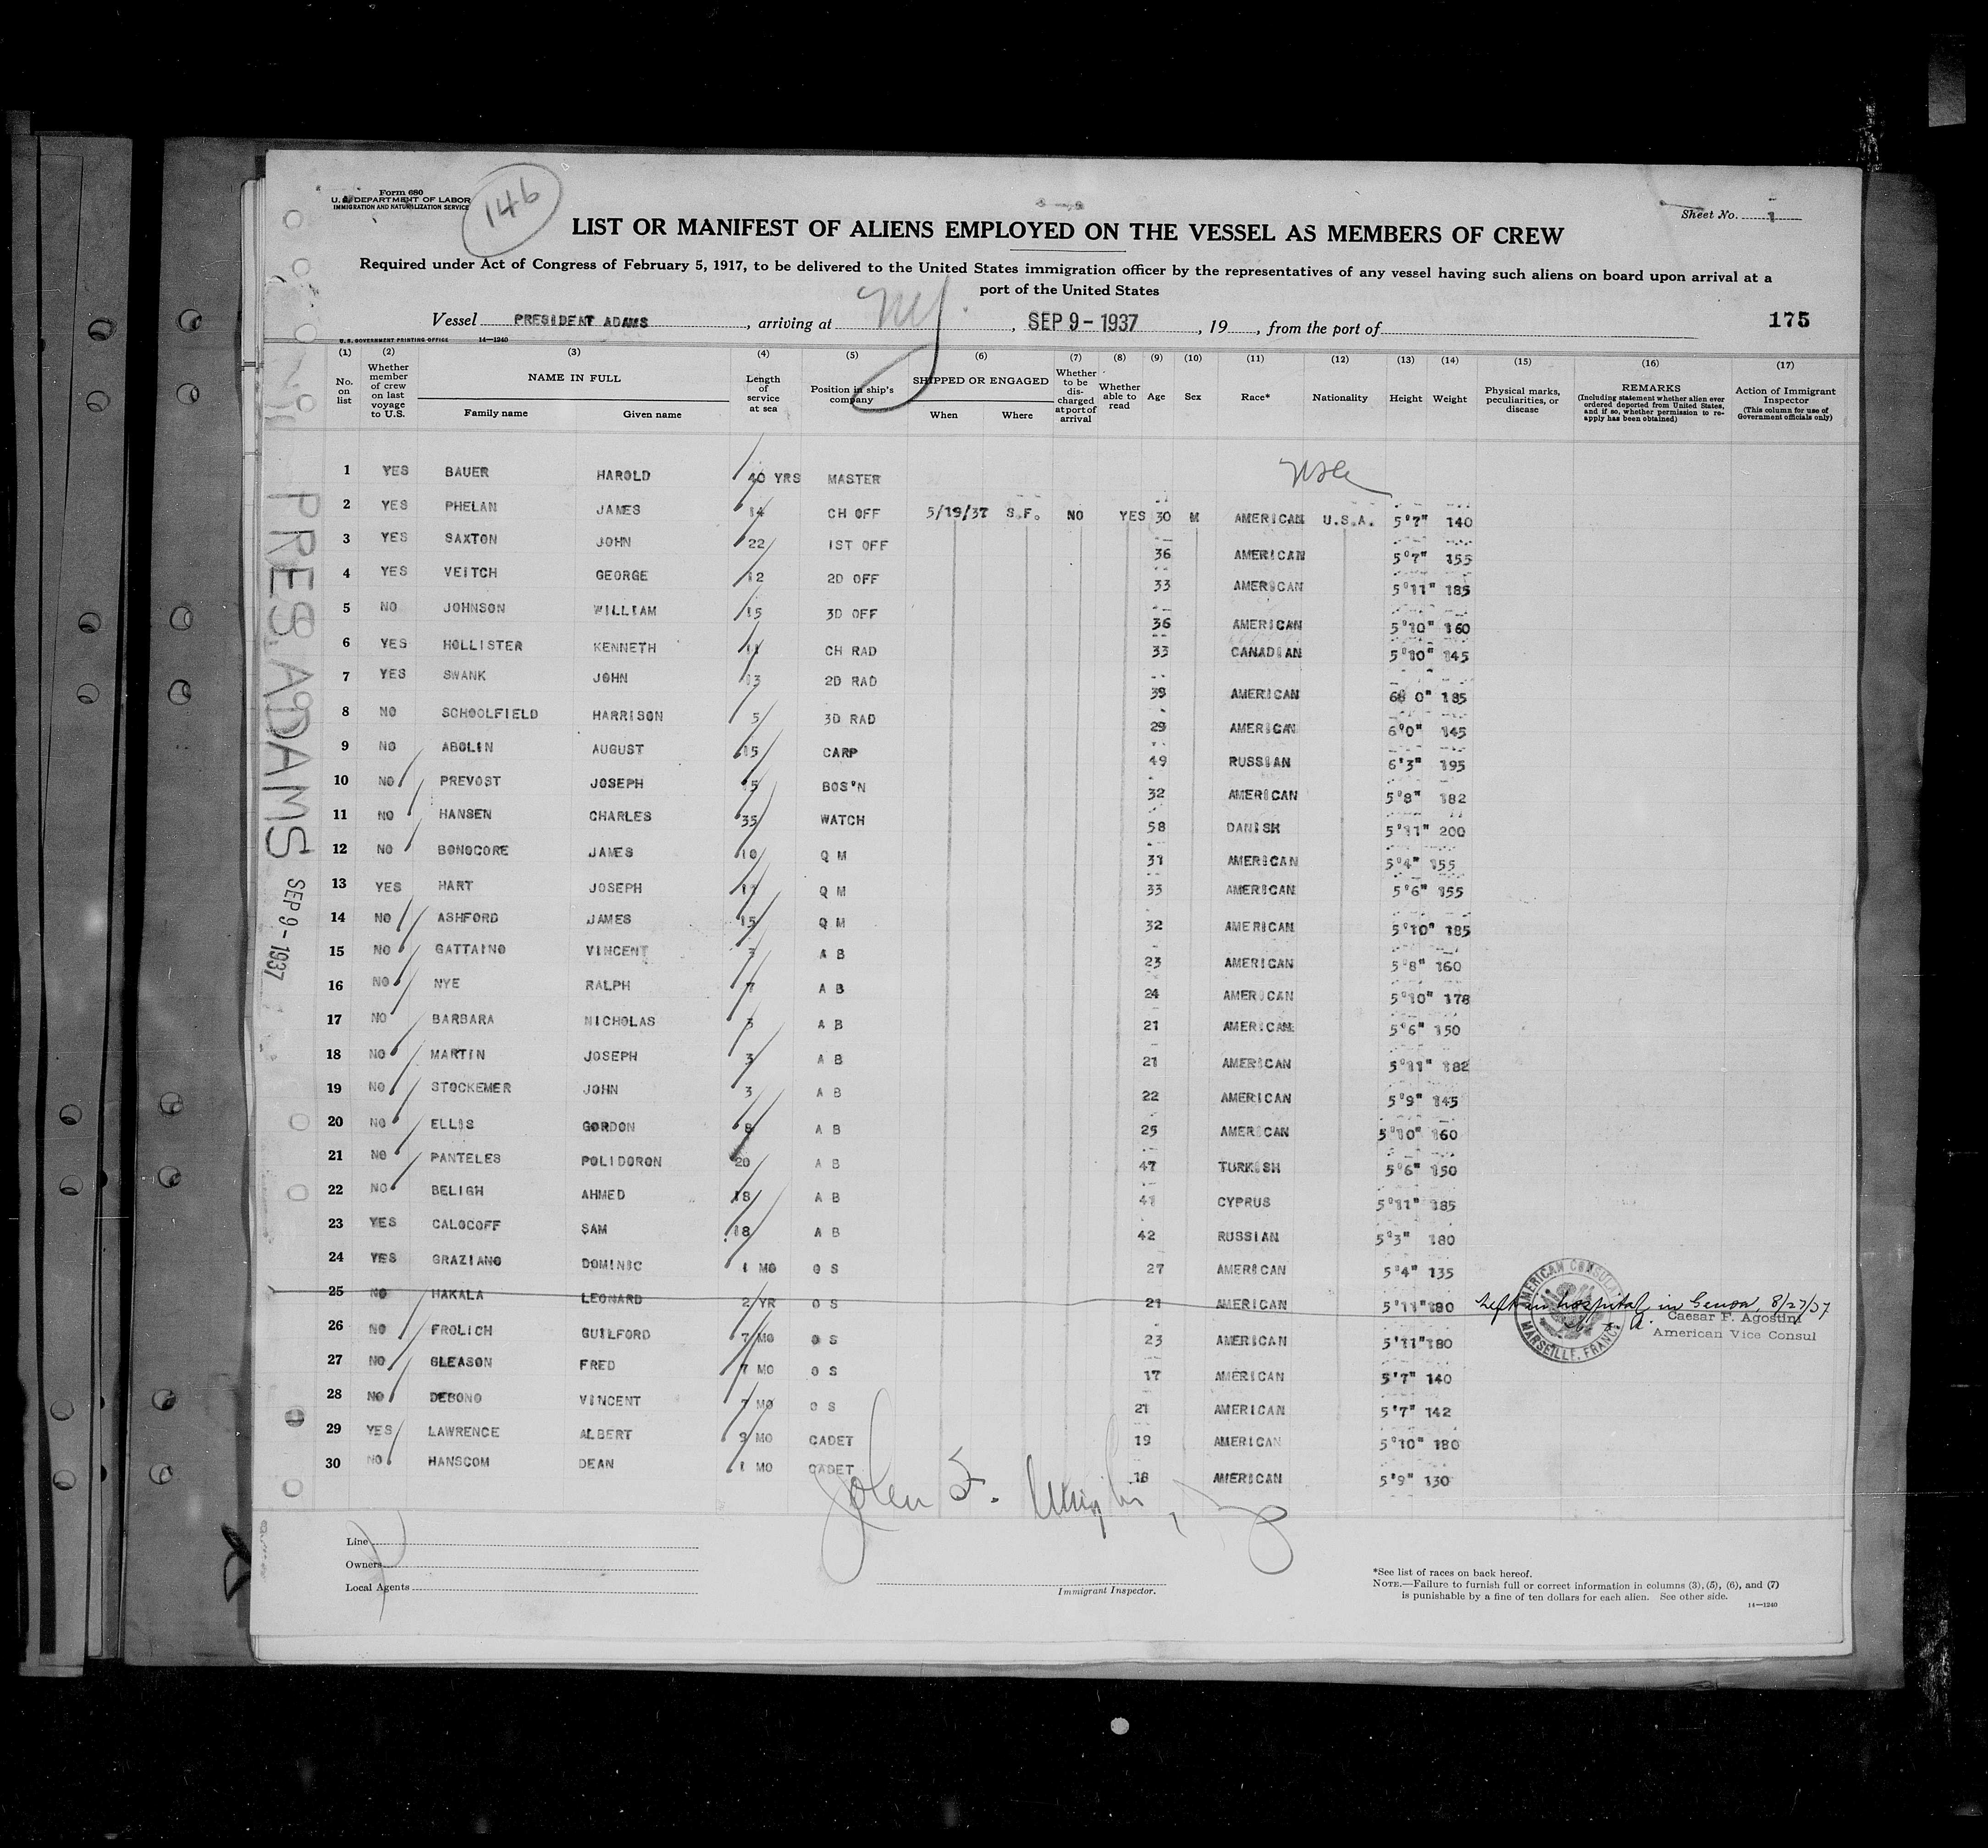 Form 680
U. S. DEPARTMENT OF LABOR
IMMIGRATION AND NATURALIZATION SERVICE
146
Sheet No. 1
LIST OR MANIFEST OF ALIENS EMPLOYED ON THE VESSEL AS MEMBERS OF CREW
Required under Act of Congress of February 5, 1917, to be delivered to the United States immigration officer by the representatives of any vessel having such aliens on board upon arrival at a
port of the United States
Vessel PRESIDENT ADAMS, arriving at NY., SEP 9 - 1937, 19, from the port of
175
U. S. GOVERNMENT PRINTING OFFICE 14—1240
(1) (2) (3) (4) (5) (6) (7) (8) (9) (10) (11) (12) (13) (14) (15) (16) (17)
No. on list
Whether member of crew on last voyage to U.S.
NAME IN FULL
Family name Given name
Length of service at sea
Position in ship's company
SHIPPED OR ENGAGED
When Where
Whether to be discharged at port of arrival
Whether able to read
Age
Sex
Race*
Nationality
Height
Weight
Physical marks, peculiarities, or disease
REMARKS
(Including statement whether alien ever ordered deported from United States, and if so, whether permission to reapply has been obtained)
Action of Immigrant Inspector
(This column for use of Government officials only)
1 YES BAUER HAROLD 40 YRS MASTER
2 YES PHELAN JAMES 14 CH OFF 5/19/37 S.F. NO YES 30 M AMERICAN U.S.A. 5'7" 140
3 YES SAXTON JOHN 22 1ST OFF 36 AMERICAN 5'7" 155
4 YES VEITCH GEORGE 12 2D OFF 33 AMERICAN 5'11" 185
5 NO JOHNSON WILLIAM 15 3D OFF 36 AMERICAN 5'10" 160
6 YES HOLLISTER KENNETH 11 CH RAD 33 CANADIAN 5'10" 145
7 YES SWANK JOHN 13 2D RAD 39 AMERICAN 6' 0" 185
8 NO SCHOOLFIELD HARRISON 5 3D RAD 29 AMERICAN 6'0" 145
9 NO ABOLIN AUGUST 15 CARP 49 RUSSIAN 6'3" 195
10 NO PREVOST JOSEPH 15 BOS'N 32 AMERICAN 5'8" 182
11 NO HANSEN CHARLES 35 WATCH 58 DANISH 5'11" 200
12 NO BONOCORE JAMES 10 Q M 31 AMERICAN 5'4" 155
13 YES HART JOSEPH Q M 33 AMERICAN 5'6" 155
14 NO ASHFORD JAMES 15 Q M 32 AMERICAN 5'10" 185
15 NO GATTAINO VINCENT A B 23 AMERICAN 5'8" 160
16 NO NYE RALPH 7 A B 24 AMERICAN 5'10" 178
17 NO BARBARA NICHOLAS 3 A B 21 AMERICAN 5'6" 150
18 NO MARTIN JOSEPH 3 A B 21 AMERICAN 5'11" 182
19 NO STOCKEMER JOHN 3 A B 22 AMERICAN 5'9" 145
20 NO ELLIS GORDON 8 A B 25 AMERICAN 5'10" 160
21 NO PANTELES POLIDORON 20 A B 47 TURKISH 5'6" 150
22 NO BELIGH AHMED 18 A B 41 CYPRUS 5'11" 185
23 YES CALOCOFF SAM 18 A B 42 RUSSIAN 5'3" 180
24 YES GRAZIANO DOMINIC 1 MO O S 27 AMERICAN 5'4" 135
25 NO HAKALA LEONARD 2 YR O S 21 AMERICAN 5'11" 180 Left in hospital in Genoa, 8/27/37
Caesar F. Agostini
American Vice Consul
AMERICAN CONSULATE MARSEILLE, FRANCE
26 NO FROLICH GUILFORD 7 MO O S 23 AMERICAN 5'11" 180
27 NO GLEASON FRED 7 MO O S 17 AMERICAN 5'7" 140
28 NO DEBONO VINCENT 7 MO O S 21 AMERICAN 5'7" 142
29 YES LAWRENCE ALBERT 9 MO CADET 19 AMERICAN 5'10" 180
30 NO HANSCOM DEAN 1 MO CADET 18 AMERICAN 5'9" 130
PRES. ADAMS SEP 9 - 1937
Line
Owners
Local Agents
John F.
Immigrant Inspector.
*See list of races on back hereof.
NOTE.—Failure to furnish full or correct information in columns (3), (5), (6), and (7)
is punishable by a fine of ten dollars for each alien. See other side.
14—1240